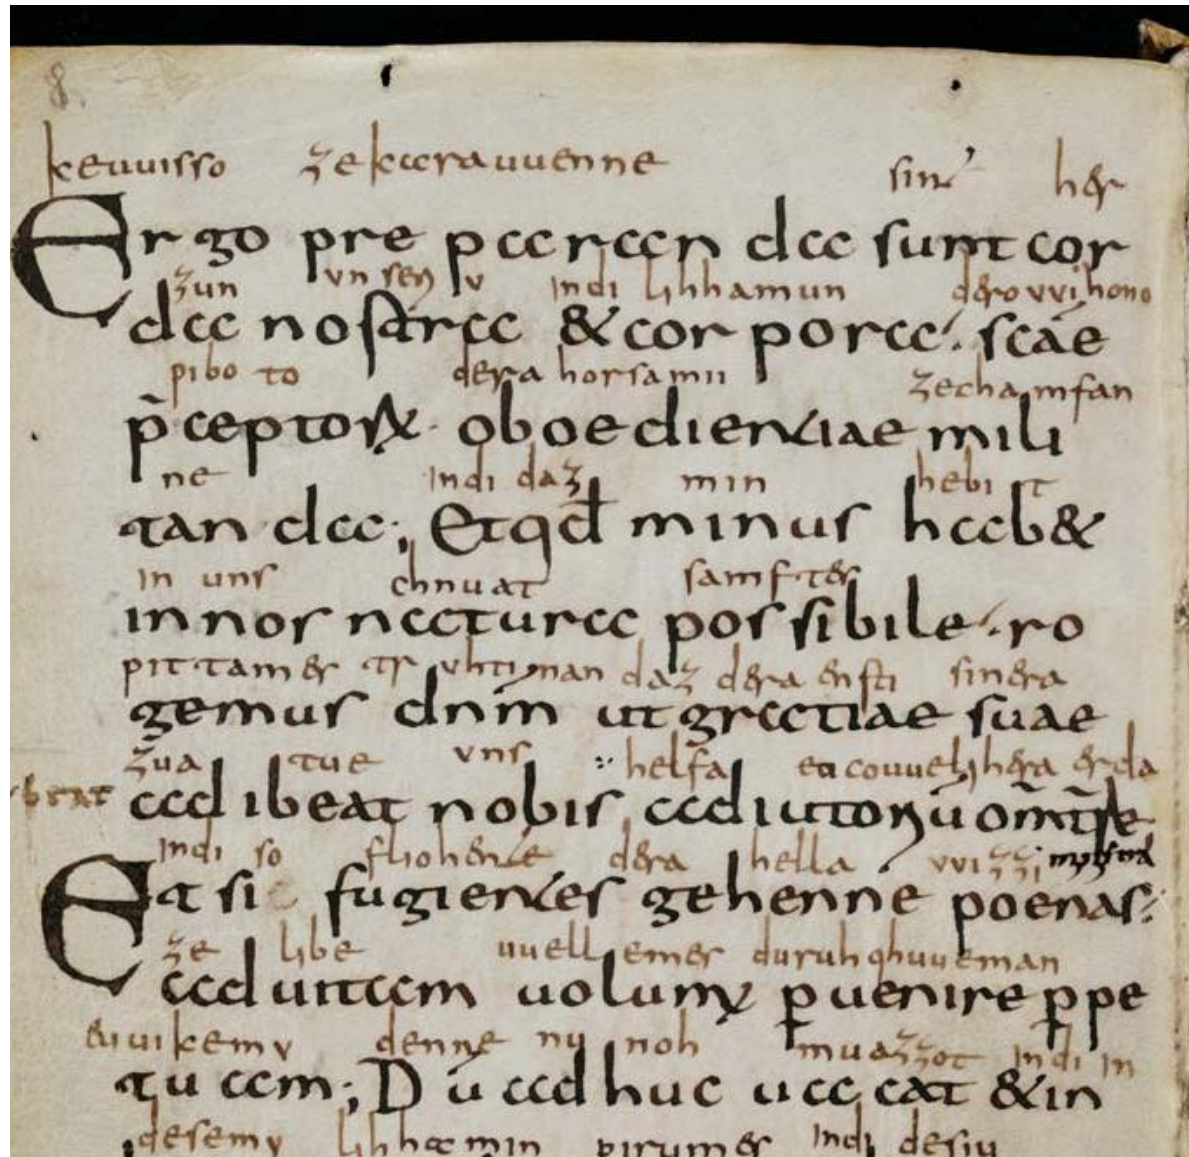 8.
keuuisso zekarauuenne sint her
Ergo preparanda sunt cor
zun unsenu indi lihhamun dero vvihono
da nostra & corpora. scāe
piboto dera horsamii zechamfan
p̄ceptorū oboedientiae mili
ne indi daz min hebit
tanda; Et qđ minus hab&
in uns chnuat samfter
in nos natura possibile. ro
pittamer truhtinan daz dera ensti sinera
gemus dnm ut gratiae suae
zua tue uns helfa
adibeat nobis adiutorium
indi so fliohente dera hella vvizzi
Et si fugientes gehenne poenas:
ze libe uuellemer duruhqhuueman
ad uitam uolumus puenire ppe
euuikemv denne nu noh muazzot indi in
tuam; Dū ad huc uacat & in
desemv lihhamin pirumes indi desiu